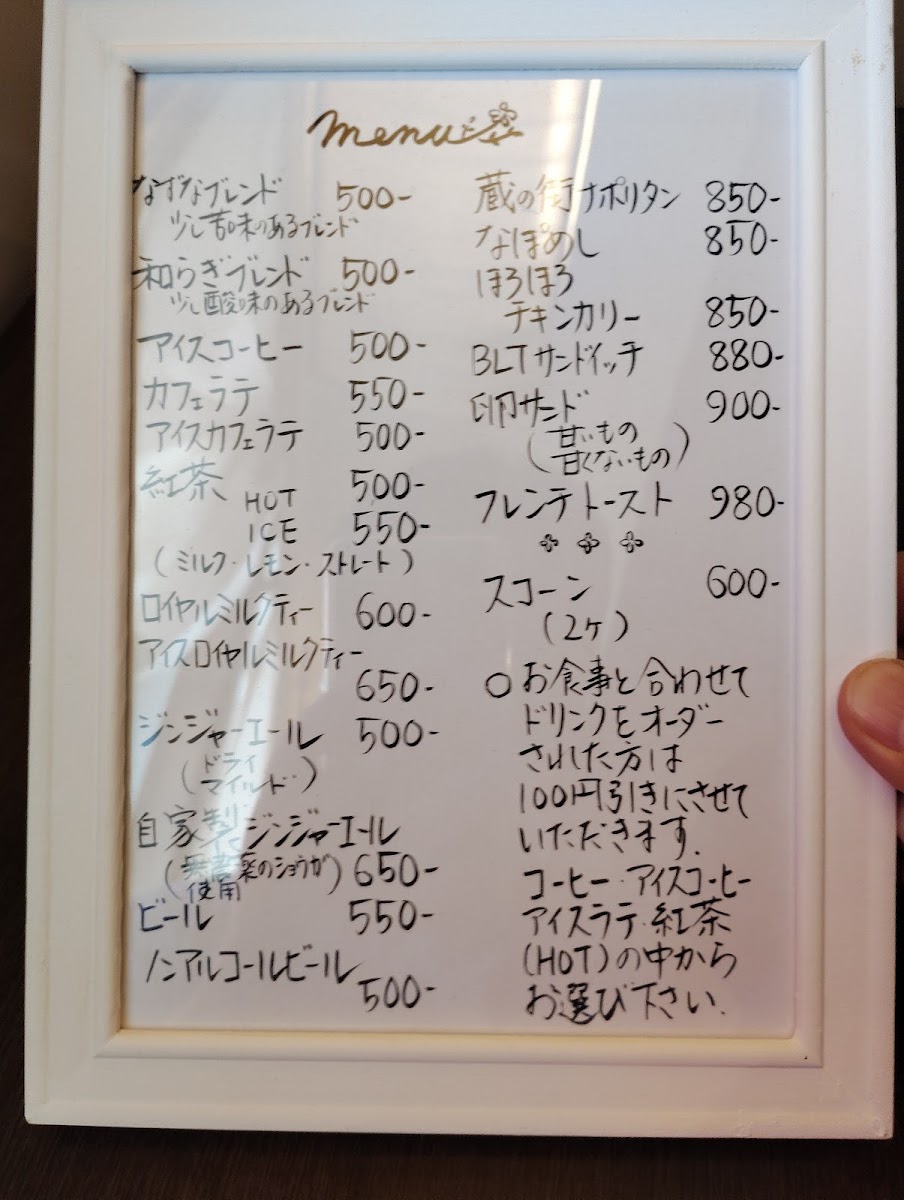 menu
なずなブレンド 500-
少し苦味のあるブレンド
和らぎブレンド 500-
少し酸味のあるブレンド
アイスコーヒー 500-
カフェラテ 550-
アイスカフェラテ 500-
紅茶 HOT 500-
ICE 550-
(ミルク・レモン・ストレート)
ロイヤルミルクティー 600-
アイスロイヤルミルクティー
650-
ジンジャーエール 500-
(ドライ
マイルド)
自家製ジンジャーエール
(無農薬のショウガ
使用) 650-
ビール 550-
ノンアルコールビール
500-
蔵の街ナポリタン 850-
なぽめし 850-
ほろほろ
チキンカリー 850-
BLTサンドイッチ 880-
卵サンド 900-
(甘いもの
甘くないもの)
フレンチトースト 980-
スコーン 600-
(2ヶ)
○お食事と合わせて
ドリンクをオーダー
された方は
100円引きにさせて
いただきます.
コーヒー・アイスコーヒー
アイスラテ・紅茶
(HOT)の中から
お選び下さい.